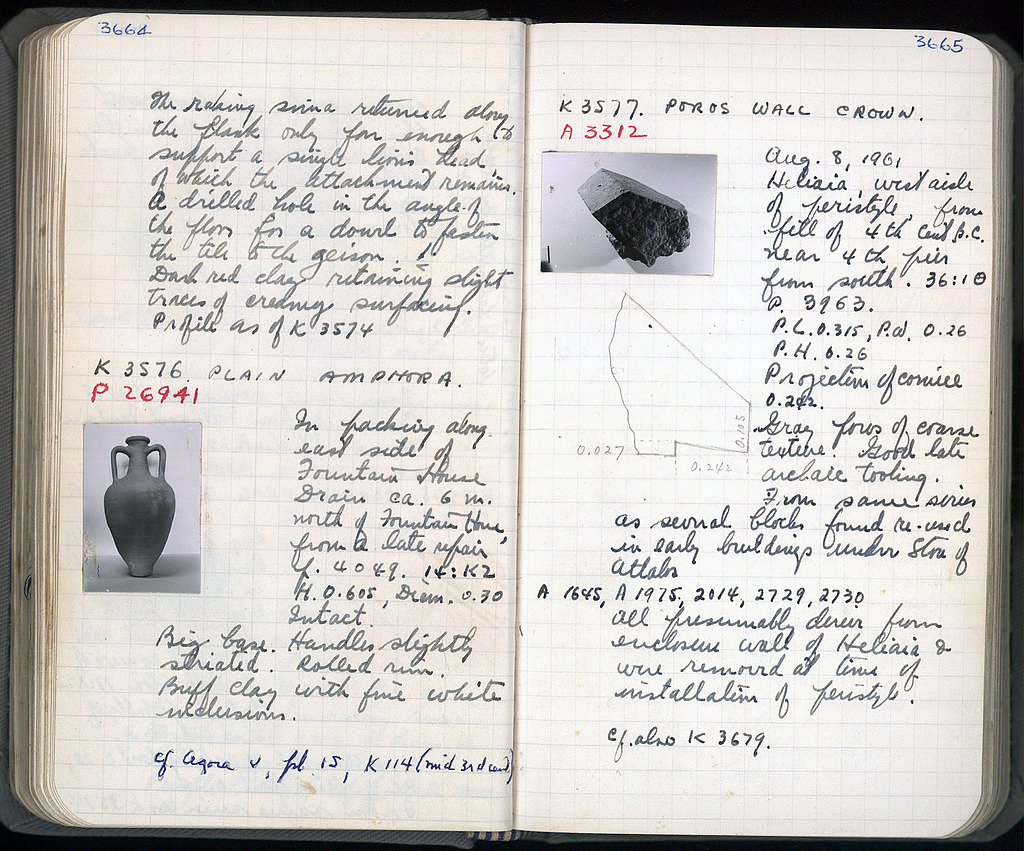 3664
The raking sima returned along
the flank only far enough to
support a single lion's head
of which the attachment remains.
A drilled hole in the angle of
the floor for a dowel to fasten
the tile to the geison.
Dark red clay retaining slight
traces of creamy surfacing.
Profile as of K 3574
K 3576 PLAIN AMPHORA.
P 26941
In packing along
east side of
Fountain House
Drain ca. 6 m.
north of Fountain House,
from a late repair
cf. 4049. 14:K2
H. 0.605, Diam. 0.30
Intact.
Big base. Handles slightly
striated. Rolled rim.
Buff clay with fine white
inclusions.
cf. Agora V, pl. 15, K 114 (mid 3rd cent)
3665
K 3577. POROS WALL CROWN.
A 3312
Aug. 8, 1961
Heliaia, west aisle
of peristyle, from
fill of 4th cent B.C.
near 4th pier
from south. 36:10
P. 3963.
P.L. 0.315, P.W. 0.26
P.H. 0.26
Projection of cornice
0.242.
Gray poros of coarse
texture. Good late
archaic tooling.
From same series
as several blocks found re-used
in early buildings under Stoa of
Attalos
A 1645, A 1975, 2014, 2729, 2730
All presumably derive from
enclosure wall of Heliaia &
were removed at time of
installation of peristyle.
cf. also K 3679.
0.027
0.242
0.105